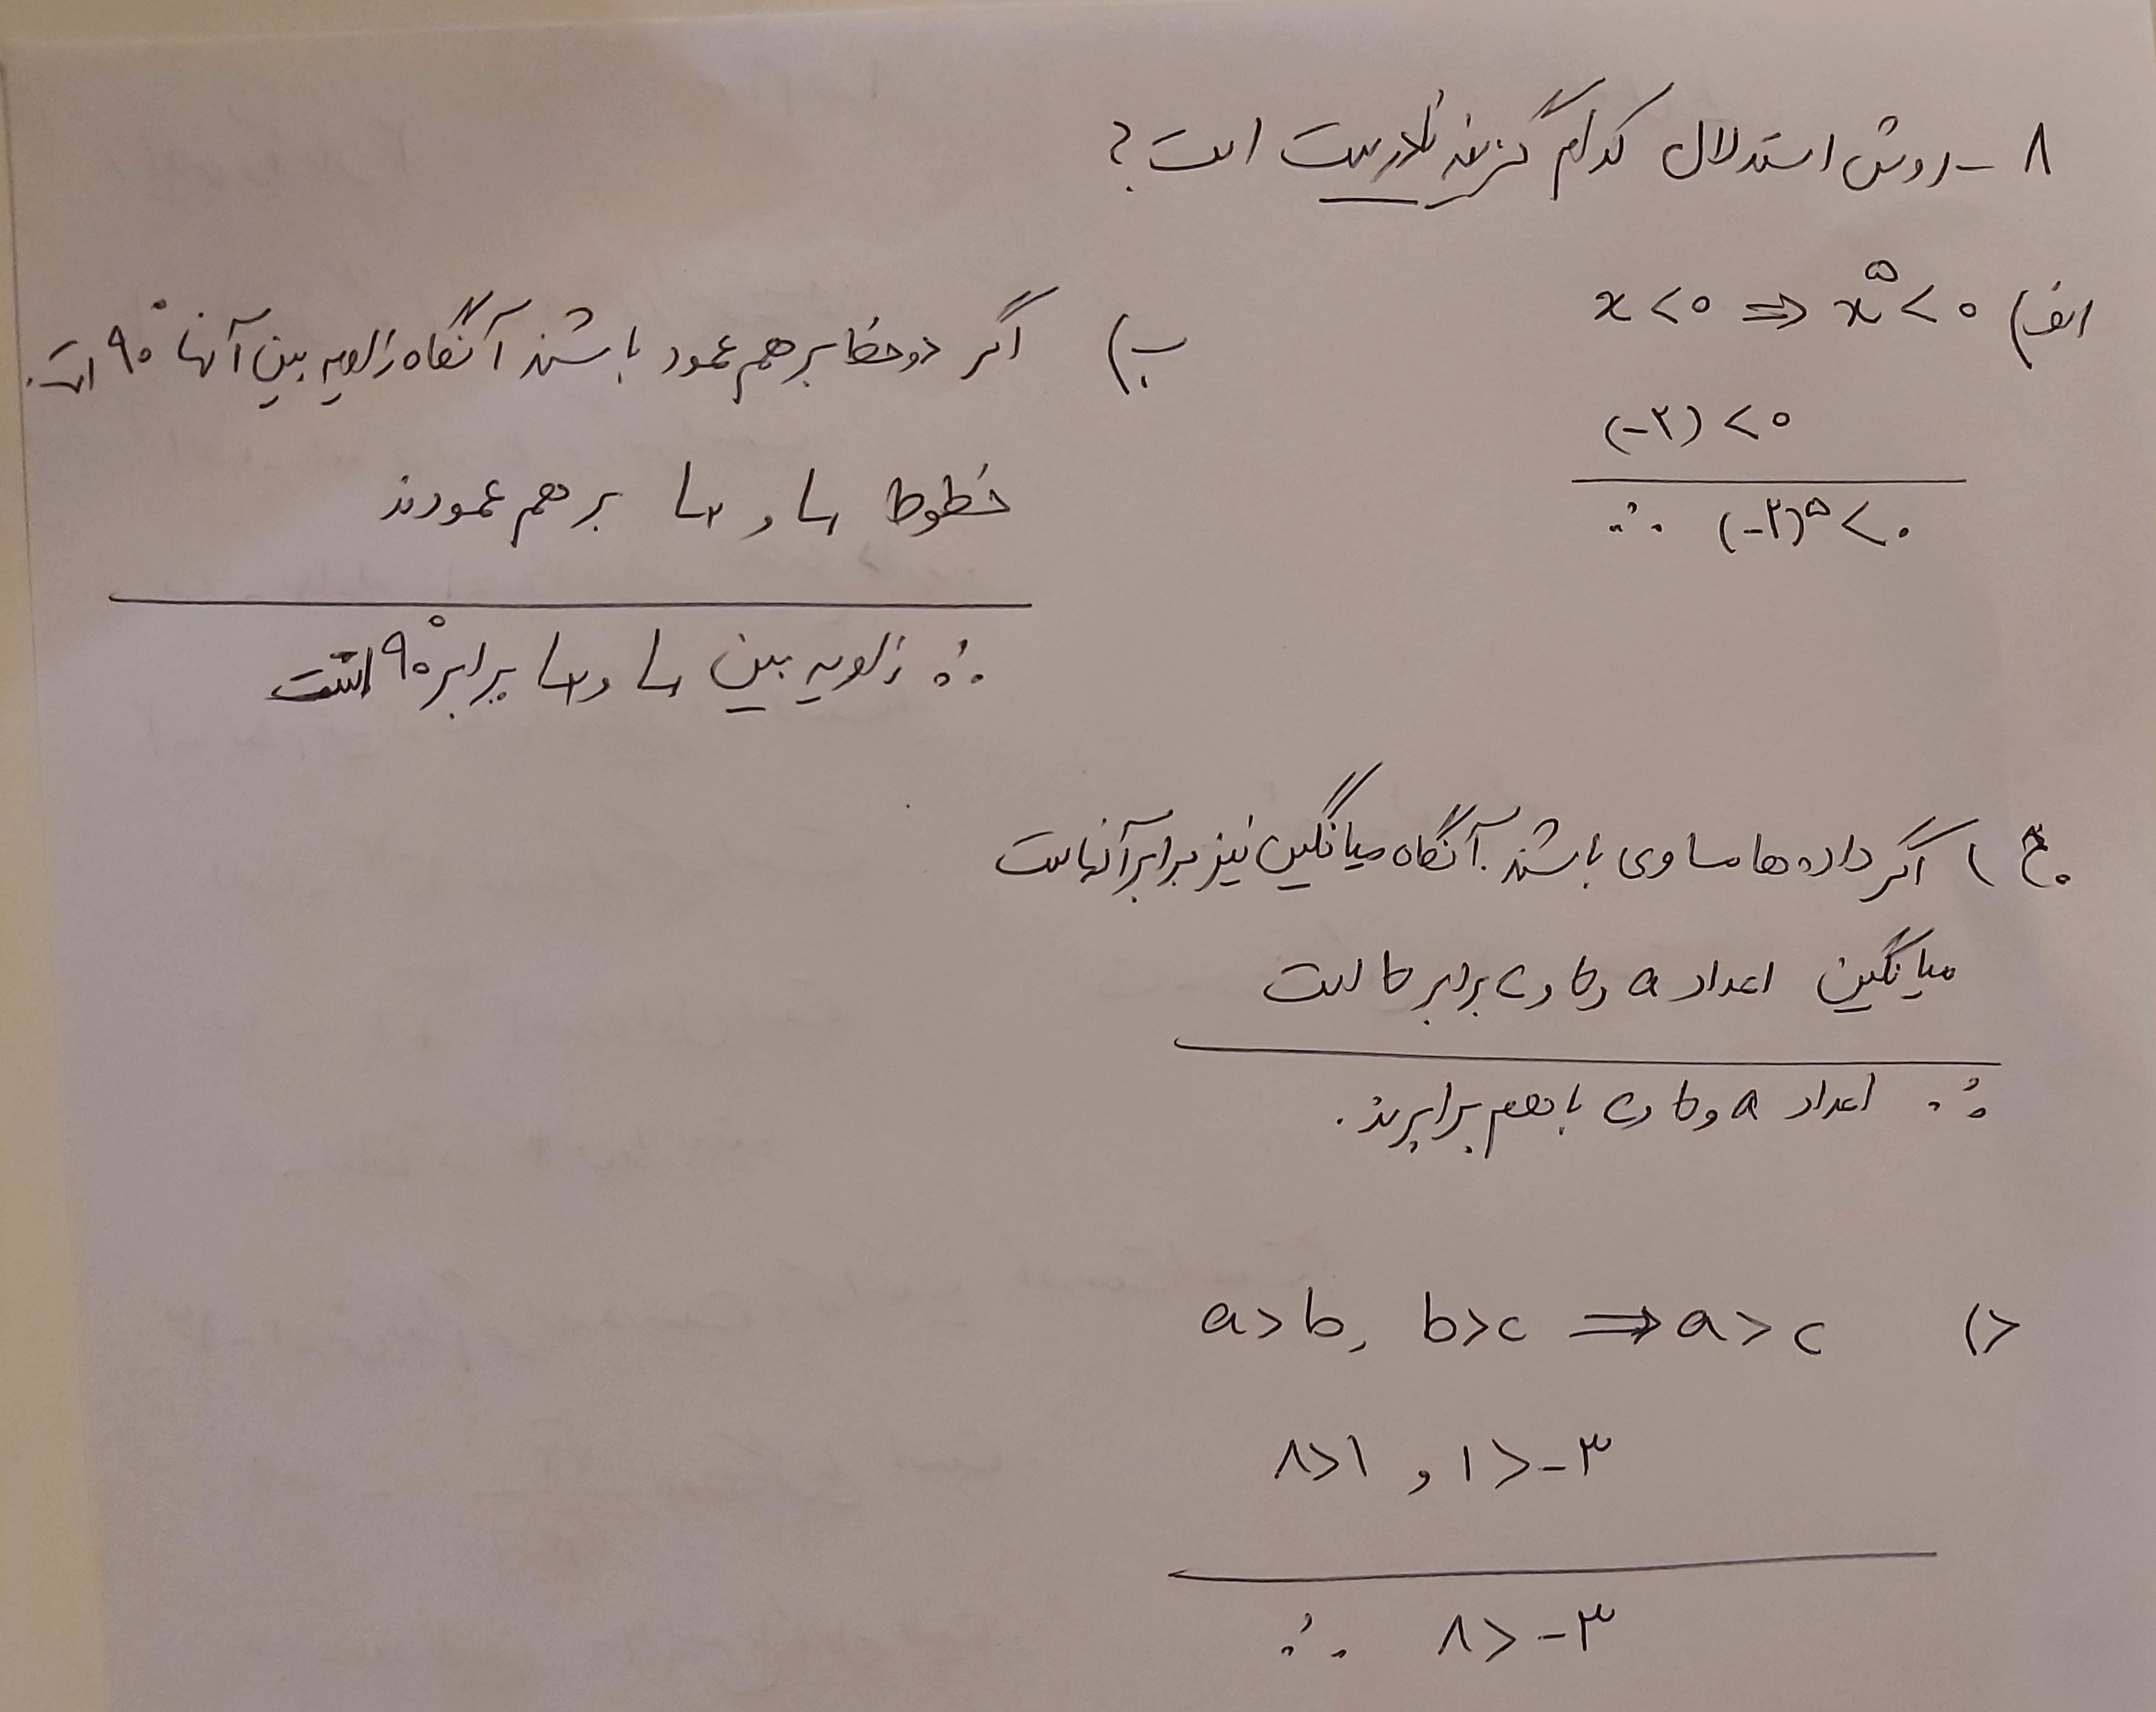 ۸ - روش استدلال کدام گزینه نادرست است؟
الف) x < ۰ ⇒ x^۵ < ۰
(-۲) < ۰
∴ (-۲)^۵ < ۰
ب) اگر دو خط بر هم عمود باشند آنگاه زاویه بین آنها ۹۰° است.
خطوط L₁ و L₂ بر هم عمودند
∴ زاویه بین L₁ و L₂ برابر ۹۰° است
ج) اگر داده ها مساوی باشند آنگاه میانگین نیز برابر آنهاست
میانگین اعداد a و b و c برابر b است
∴ اعداد a و b و c با هم برابرند.
د) a > b, b > c ⇒ a > c
۸ > ۱ , ۱ > -۳
∴ ۸ > -۳